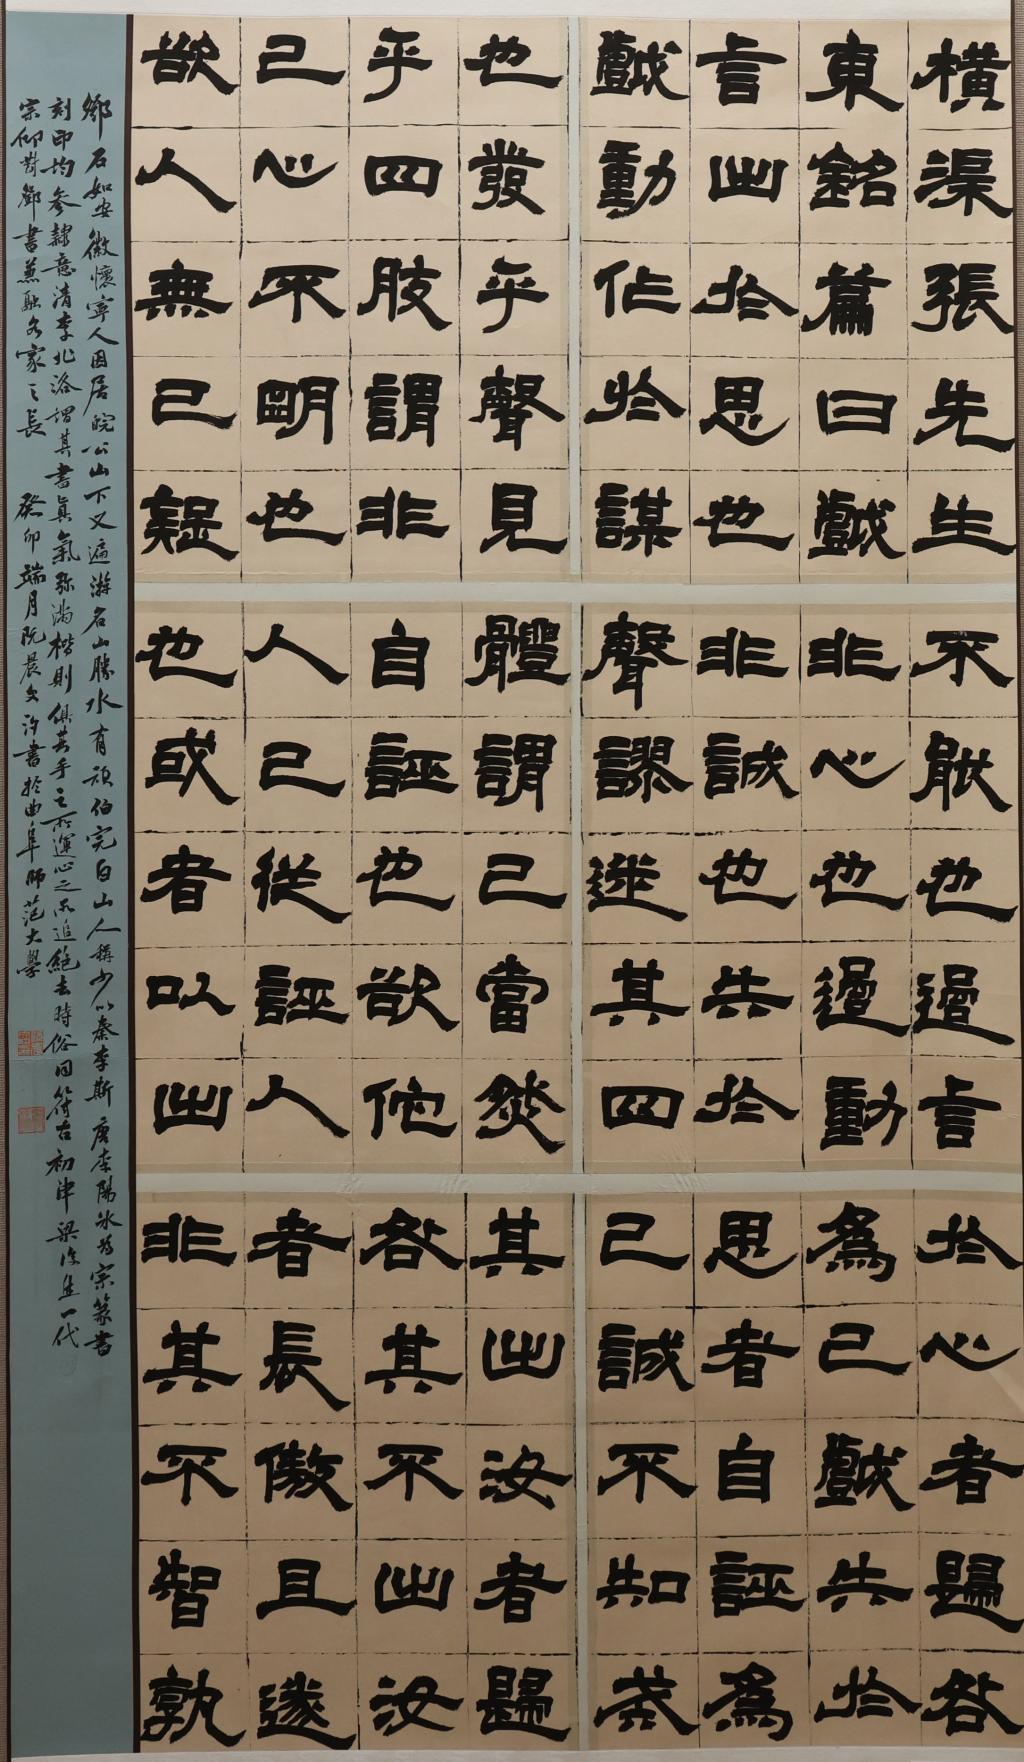 橫渠張先生
東銘篇曰戲
言出於思也
戲動作於謀
也發乎聲見
乎四肢謂非
己心不明也
欲人無己疑
不能也過言
非心也過動
非誠也失於
聲謬迷其四
體謂己當然
自誣也欲佗
人己從誣人
也或者以出
於心者歸咎
為己戲失於
思者自誣為
己誠不知戒
其出汝者歸
咎其不出汝
者長傲且遂
非其不智孰
鄧石如安徽懷寧人因居皖公山下又遍游名山勝水有頑伯完白山人稱少以秦李斯唐李陽冰為宗篆書
刻印均參隸意清李兆洛謂其書真氣弥滿楷則俱其手之所運心之所追絕去時俗同符古初津梁後進一代
宗仰對鄧書兼融各家之長 癸卯端月阮晨文汐書於曲阜師范大學